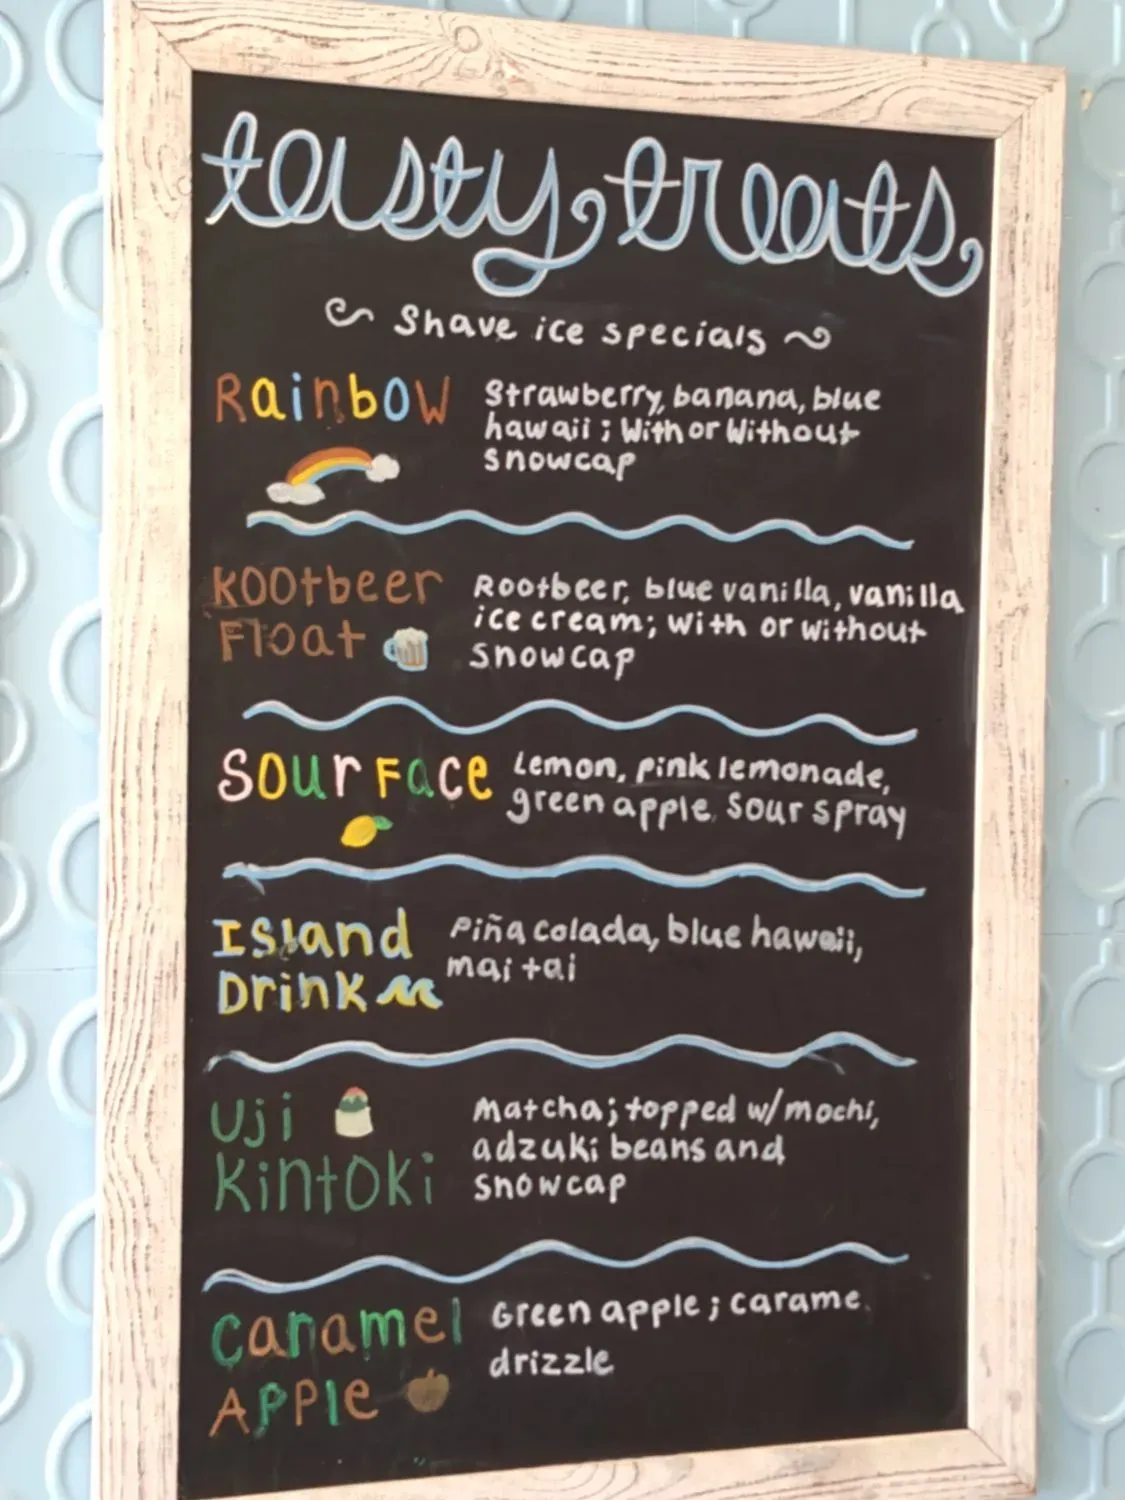 tasty treats
Shave ice specials
Rainbow
Strawberry, banana, blue
hawaii; with or without
snowcap
Rootbeer
Float
Rootbeer, blue vanilla, vanilla
ice cream; with or without
snowcap
Sour Face
Lemon, pink lemonade,
green apple, sour spray
Island
Drink
Piña colada, blue hawaii,
mai tai
Uji
Kintoki
Matcha; topped w/mochi,
adzuki beans and
snowcap
Caramel
Apple
Green apple; carame
drizzle